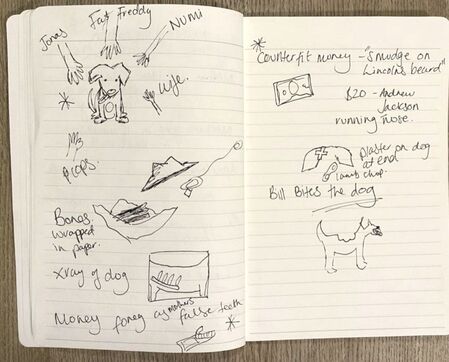 Jonas
Fat Freddy
Numi
Wife.
Bones
wrapped
in paper.
xray of dog
Money as mothers false teeth
Counterfit money - "smudge on
Lincolns beard"
$20 - Andrew
Jackson
running nose.
plaster on dog
at end
lamb chop.
Bill Bites the dog